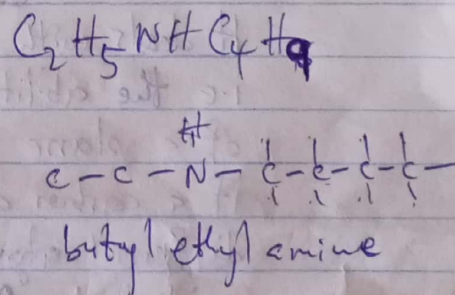 C₂H₅NHC₄H₉
H
C-C-N-C-C-C-C-
butyl ethyl amine